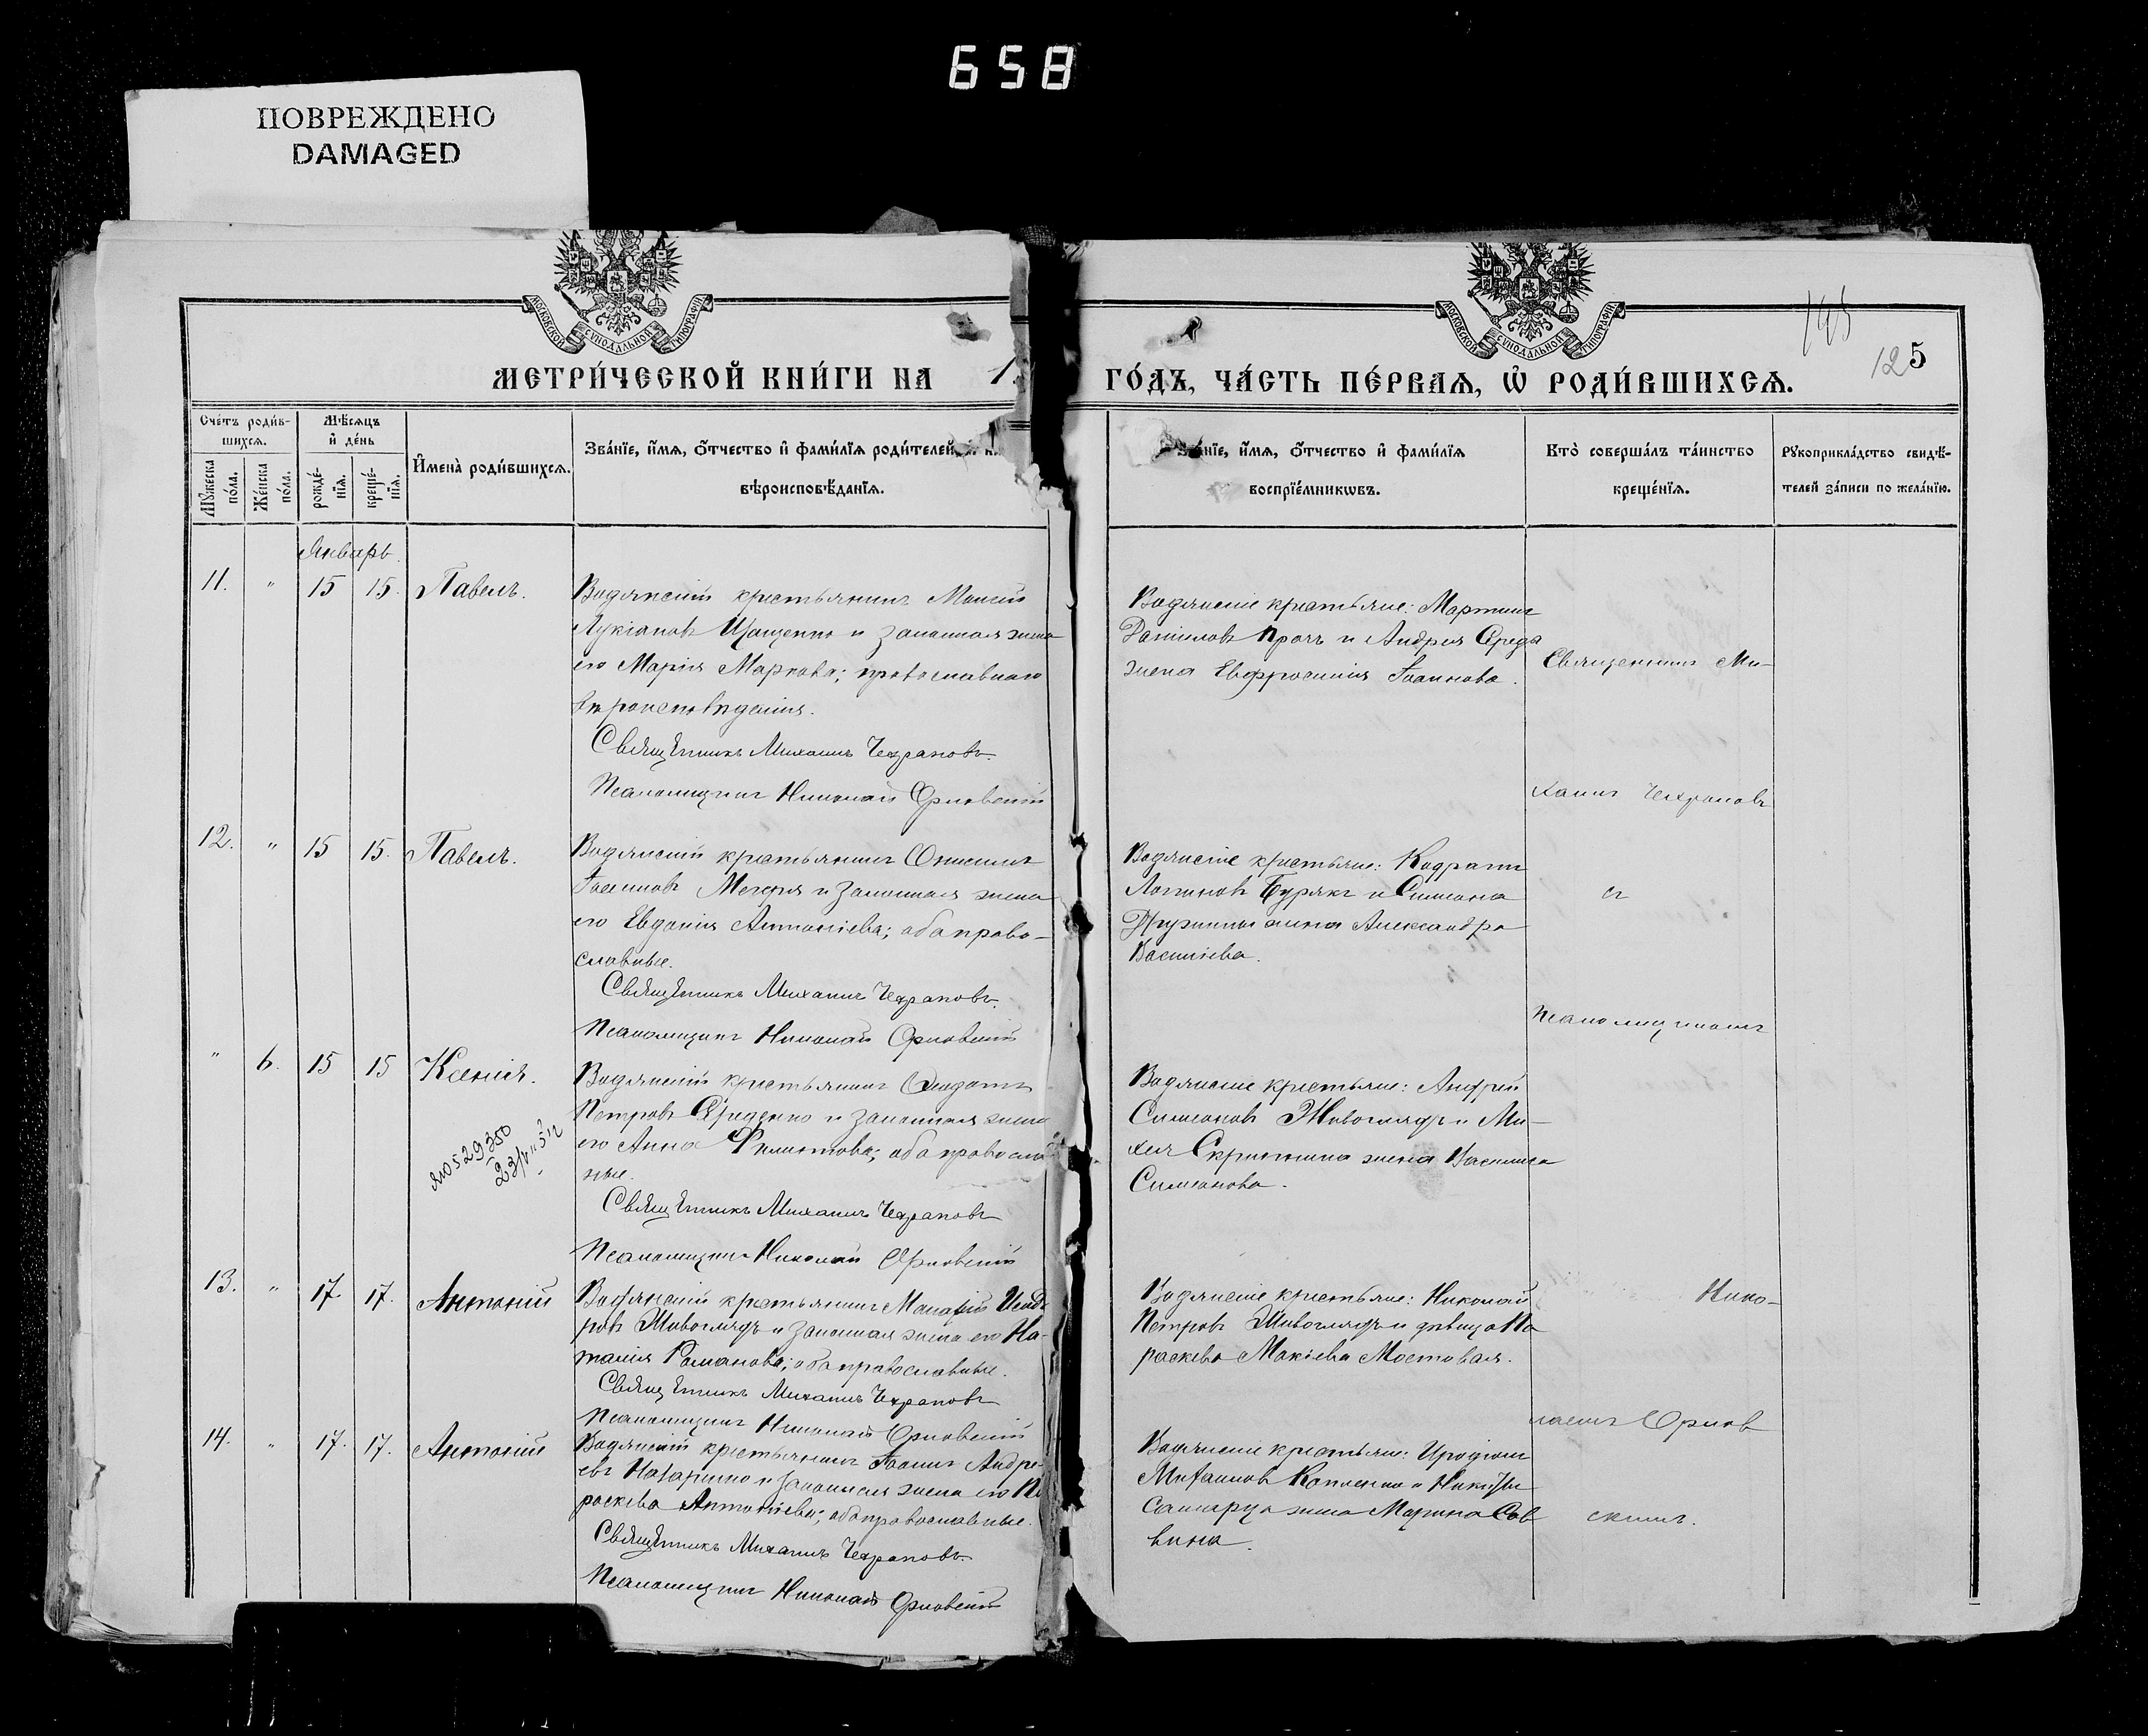 658
ПОВРЕЖДЕНО
DAMAGED
МОСКОВСКОЙ СѴНОДАЛЬНОЙ ТИПОГРАФІИ
МОСКОВСКОЙ СѴНОДАЛЬНОЙ ТИПОГРАФІИ
125
МЕТРИ́ЧЕСКОЙ КНИ́ГИ НА 1
ГО́ДЪ, ЧА́СТЬ ПЕ́РВАѦ, Ѡ҆ РОДИ́ВШИХСѦ.
Сче́тъ роди́вшихсѧ.
Мꙋ́жеска по́ла.
Же́нска по́ла.
Мѣ́сѧцъ и҆ де́нь
рожде́нїѧ.
креще́нїѧ.
И҆мена̀ роди́вшихсѧ.
Зва́нїе, и҆́мѧ, ѻ҆́тчество и҆ фами́лїѧ роди́телей, и҆ к
вѣроисповѣ́данїѧ.
нїе, и҆́мѧ, ѻ҆́тчество и҆ фами́лїѧ
воспрїе́мникѡвъ.
Кто̀ соверша́лъ та́инство
креще́нїѧ.
Рꙋкоприкла́дство свидѣ́-
телей за́писи по жела́нїю.
Январь
11. " 15 15. Павелъ.
Водянскій крестьянинъ Моисей
Лукіановъ Цоценко и законная жена
его Марія Маркова; православнаго
вѣроисповѣданія.
Священникъ Михаилъ Чехрановъ.
Псаломщикъ Николай Орловскій
Водянскіе крестьяне: Мартинъ
Даніиловъ Прочъ и Андрея Среда
жена Евфросинія Іоаннова.
Священникъ Ми-
хаилъ Чехрановъ
12. " 15 15. Павелъ.
Водянскій крестьянинъ Онисимъ
Іоанновъ Мегеря и законная жена
его Евдокія Антоніева; оба право-
славные.
Священникъ Михаилъ Чехрановъ.
Псаломщикъ Николай Орловскій
Водянскіе крестьяне: Кодратъ
Логиновъ Бурякъ и Симеона
Дружины жена Александра
Васильева.
съ
псаломщикомъ
" 6. 15 15 Ксенія.
Водянскій крестьянинъ Феодотъ
Петровъ Середенко и законная жена
его Анна Филиппова; оба православ
ные.
Священникъ Михаилъ Чехрановъ
Псаломщикъ Николай Орловскій
Водянскіе крестьяне: Андрей
Симеоновъ Живоглядъ и Ми-
хея Скрипника жена Васса
Симеонова.
13. " 17. 17. Антоній
Водянскій крестьянинъ Макарій Исид-
ровъ Живоглядъ и законная жена его На-
талія Романова; оба православные.
Священникъ Михаилъ Чехрановъ
Псаломщикъ Николай Орловскій
Водянскіе крестьяне: Николай
Петровъ Живоглядъ и дѣвица Па
раскева Макіева Мостовая.
Нико-
лаемъ Орлов
скимъ.
14. " 17. 17. Антоній
Водянскій крестьянинъ Іоаннъ Андре-
евъ Назаренко и законная жена его Па
раскева Антоніева; оба православные.
Священникъ Михаилъ Чехрановъ.
Псаломщикъ Николай Орловскій
Водянскіе крестьяне: Иродіонъ
Михаиловъ Копленко и Никиты
жена Марина Сав
вина.